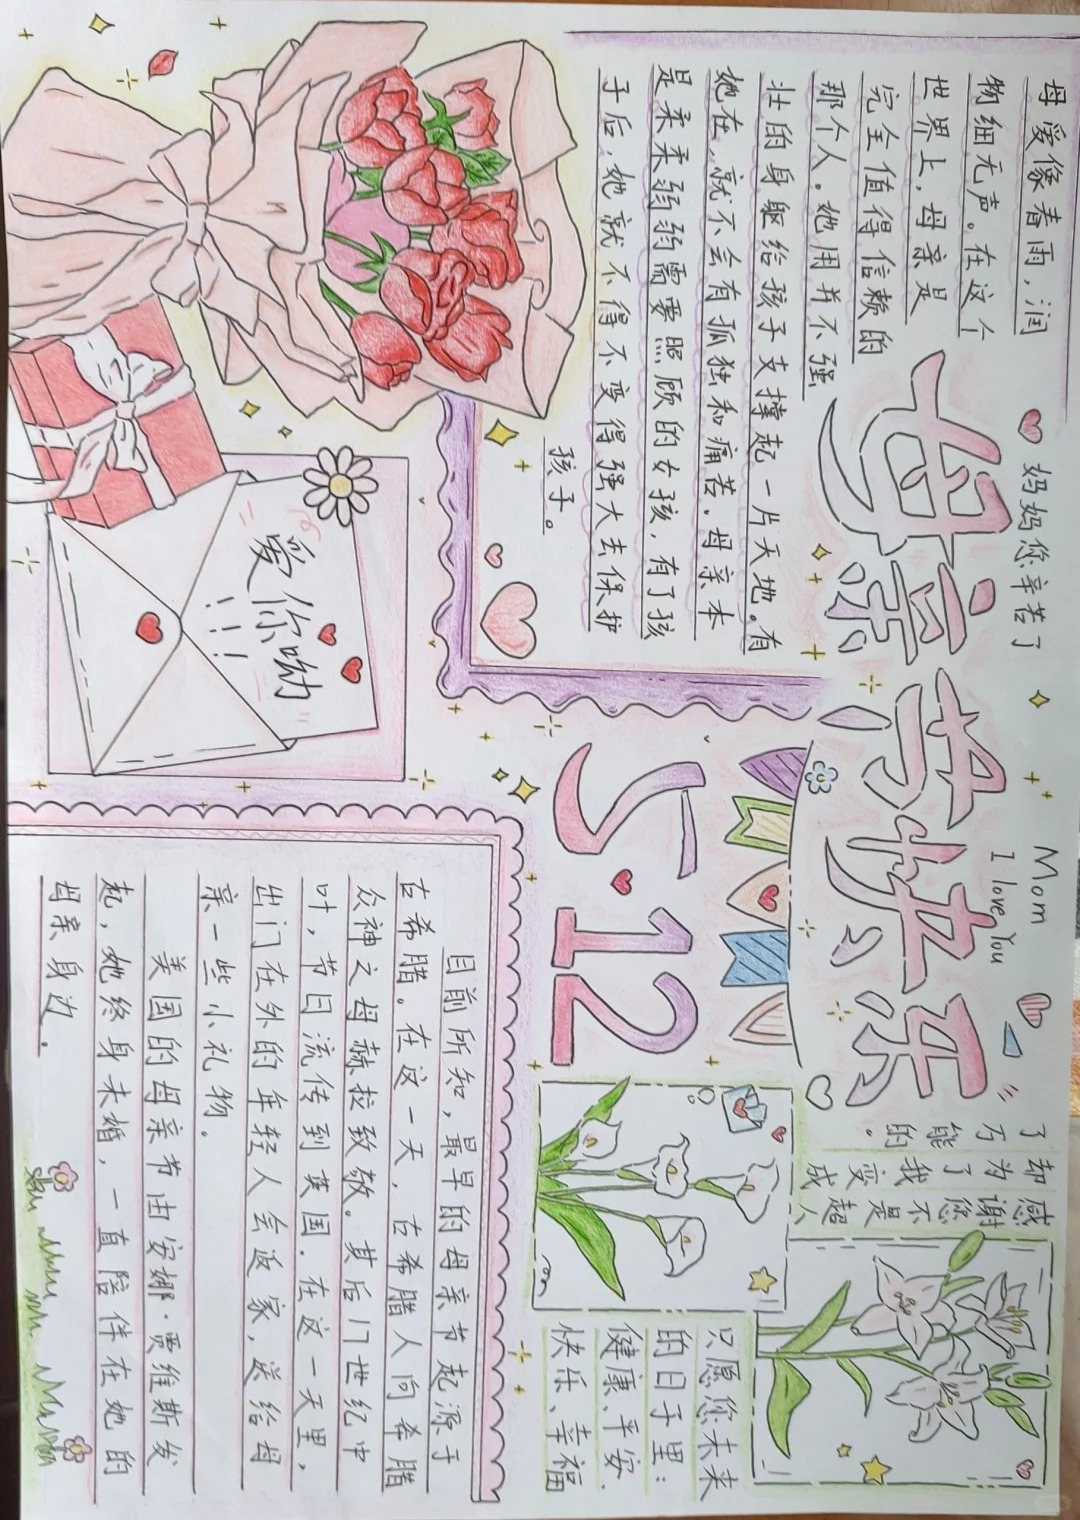 妈妈您辛苦了
Mom
I love You
母亲节快乐
母爱像春雨，润
物细无声。在这个
世界上，母亲是
完全值得信赖的
那个人。她用并不强
壮的身躯给孩子支撑起一片天地。有
她在，就不会有孤独和痛苦。母亲本
是柔柔弱弱需要照顾的女孩，有了孩
子后，她就不得不变得强大去保护
孩子。
5·12
感谢您不是超人
却为了我变成
了万能的。
只愿您未来
的日子里：
健康、平安、
快乐、幸福
爱你呦
目前所知，最早的母亲节起源于
古希腊。在这一天，古希腊人向希腊
众神之母赫拉致敬。其后17世纪中
叶，节日流传到英国．在这一天里，
出门在外的年轻人会返家，送给母
亲一些小礼物．
美国的母亲节由安娜·贾维斯发
起，她终身未婚，一直陪伴在她的
母亲身边．